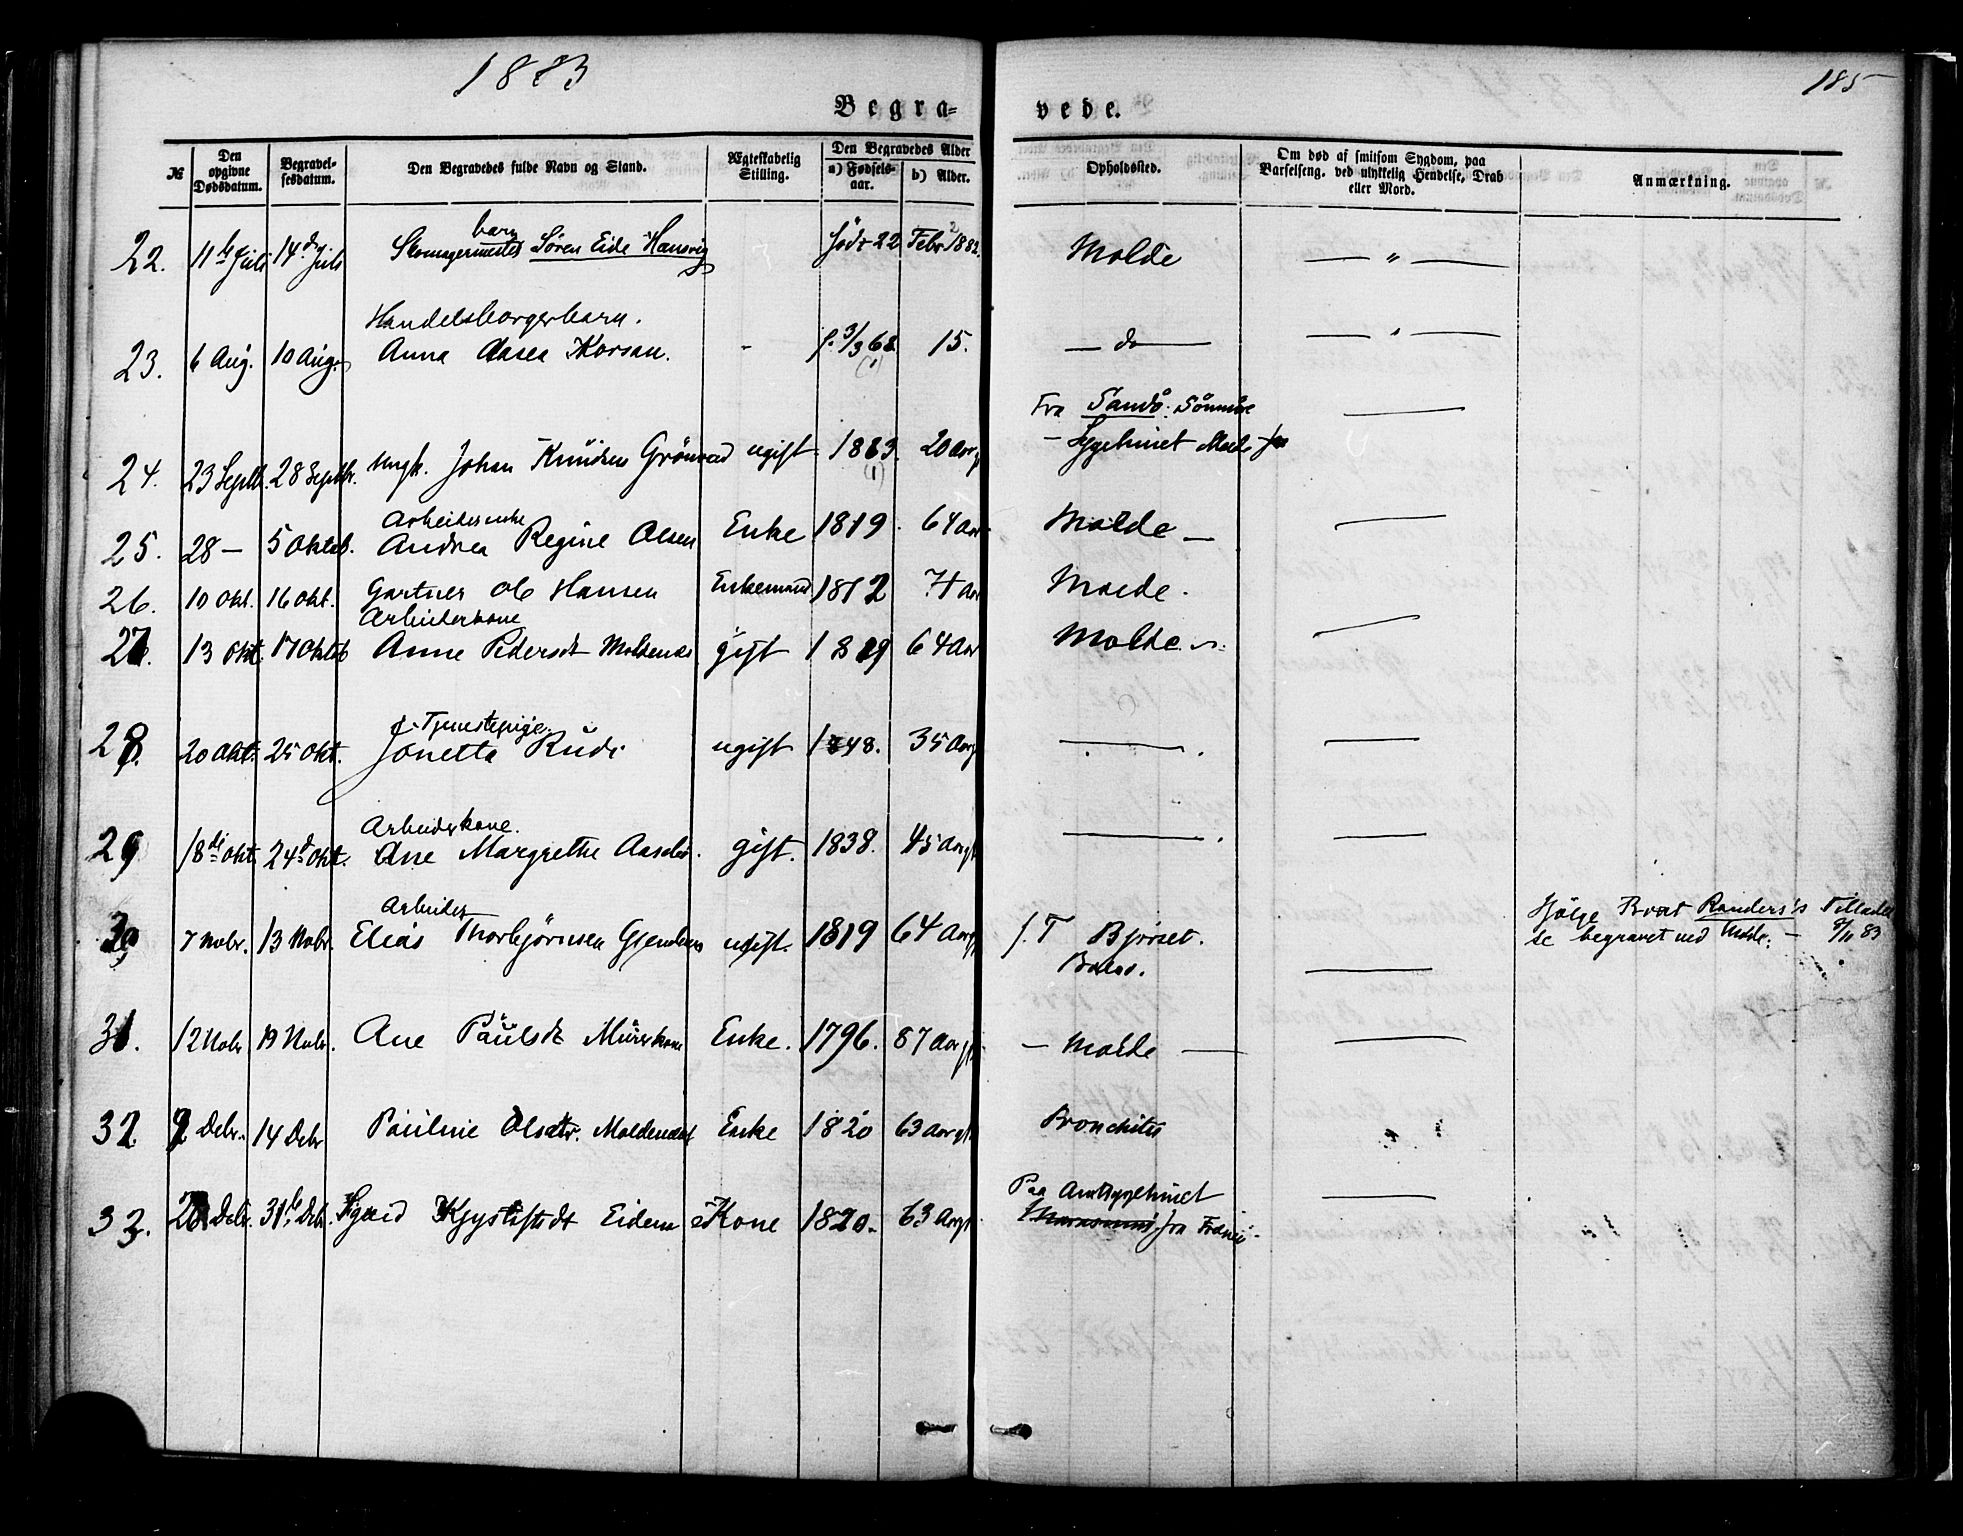 1883
185
Begra= vede.
№ Den opgivne Dødsdatum. Begravelsesdatum. Den Begravedes fulde Navn og Stand. Ægteskabelig Stilling. Den Begravedes Alder a) Fødselsaar. b) Alder. Opholdssted. Om død af smitsom Sygdom, paa Barselseng, ved ulykkelig Hendelse, Drab eller Mord. Anmærkning.
barn
22. 11te Juli 14de Juli Skomagermester Søren Eide Hansvig født 22 Febr 1882. Molde — " —
Handelsborgerbarn.
23. 6 Aug. 10 Aug. Anna Aasea Korsan. - f. 3/3 68 15. — do — — " —
Fra Sandø. Söndmöre
24. 23 Septb. 28 Septbr. Ungk. Johan Knudsen ugift 1863. 20 Aar — Sygehuset Molde
Arbeiderenke
25. 28 — 5 Oktob. Andrea Regine Olsen Enke 1819. 64 Aar Molde —
26. 10 Okt. 16 Okt. Gartner Ole Hansen Enkemand 1812 71 Aar Molde.
Arbeiderkone
27. 13 Okt. 17 Oktob Anne Pedersdt Moldenæs gift 1819 64 Aar Molde
Tjenestepige
28. 20 Okt. 25 Okt. Jonetta Rüd ugift 1848. 35 Aar
Arbeiderkone.
29 18de Okt. 24d Okt. Ane Margrethe gift. 1838. 45 Aar
Arbeider
30 7 Nobr. 13 Nobr. Elias Thorbjørnsen ugift. 1819 64 Aar f. T Bjørset. Bolsø.
Ifølge Provst Randers's Tilladelse begravet ved Molde. — 9/11 83
31. 12 Nobr 19 Nobr. Ane Paülsdt Mürerkone Enke. 1796. 87 Aar — Molde —
32 9 Debr. 14 Debr Paüline Olsdtr. Moldenæs Enke 1820 63 Aar Bronchitis
Paa Amtssygehuset
33. Debr. 31te Debr. Kone 1820. 63 Aar fra